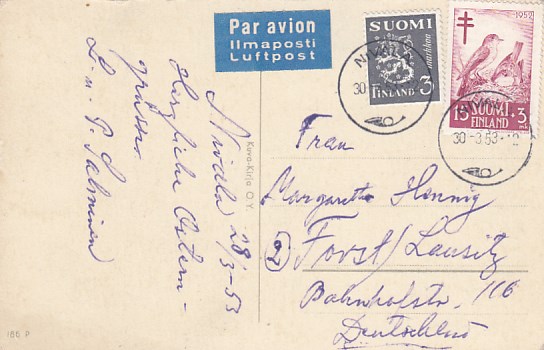 Par avion
Ilmaposti
Luftpost
SUOMI
markkaa
FINLAND 3
30
1952
15 SUOMI +3
FINLAND mk
30-3.53
Nivala 28/3-53
Herzliche Ostern-
grüsse
L. u. P. Salminen
Kuva-Kirja O.Y.
Frau
Margarethe Hennig
2 Forst/Lausitz
Bahnhofstr. 116
Deutschland
166 P